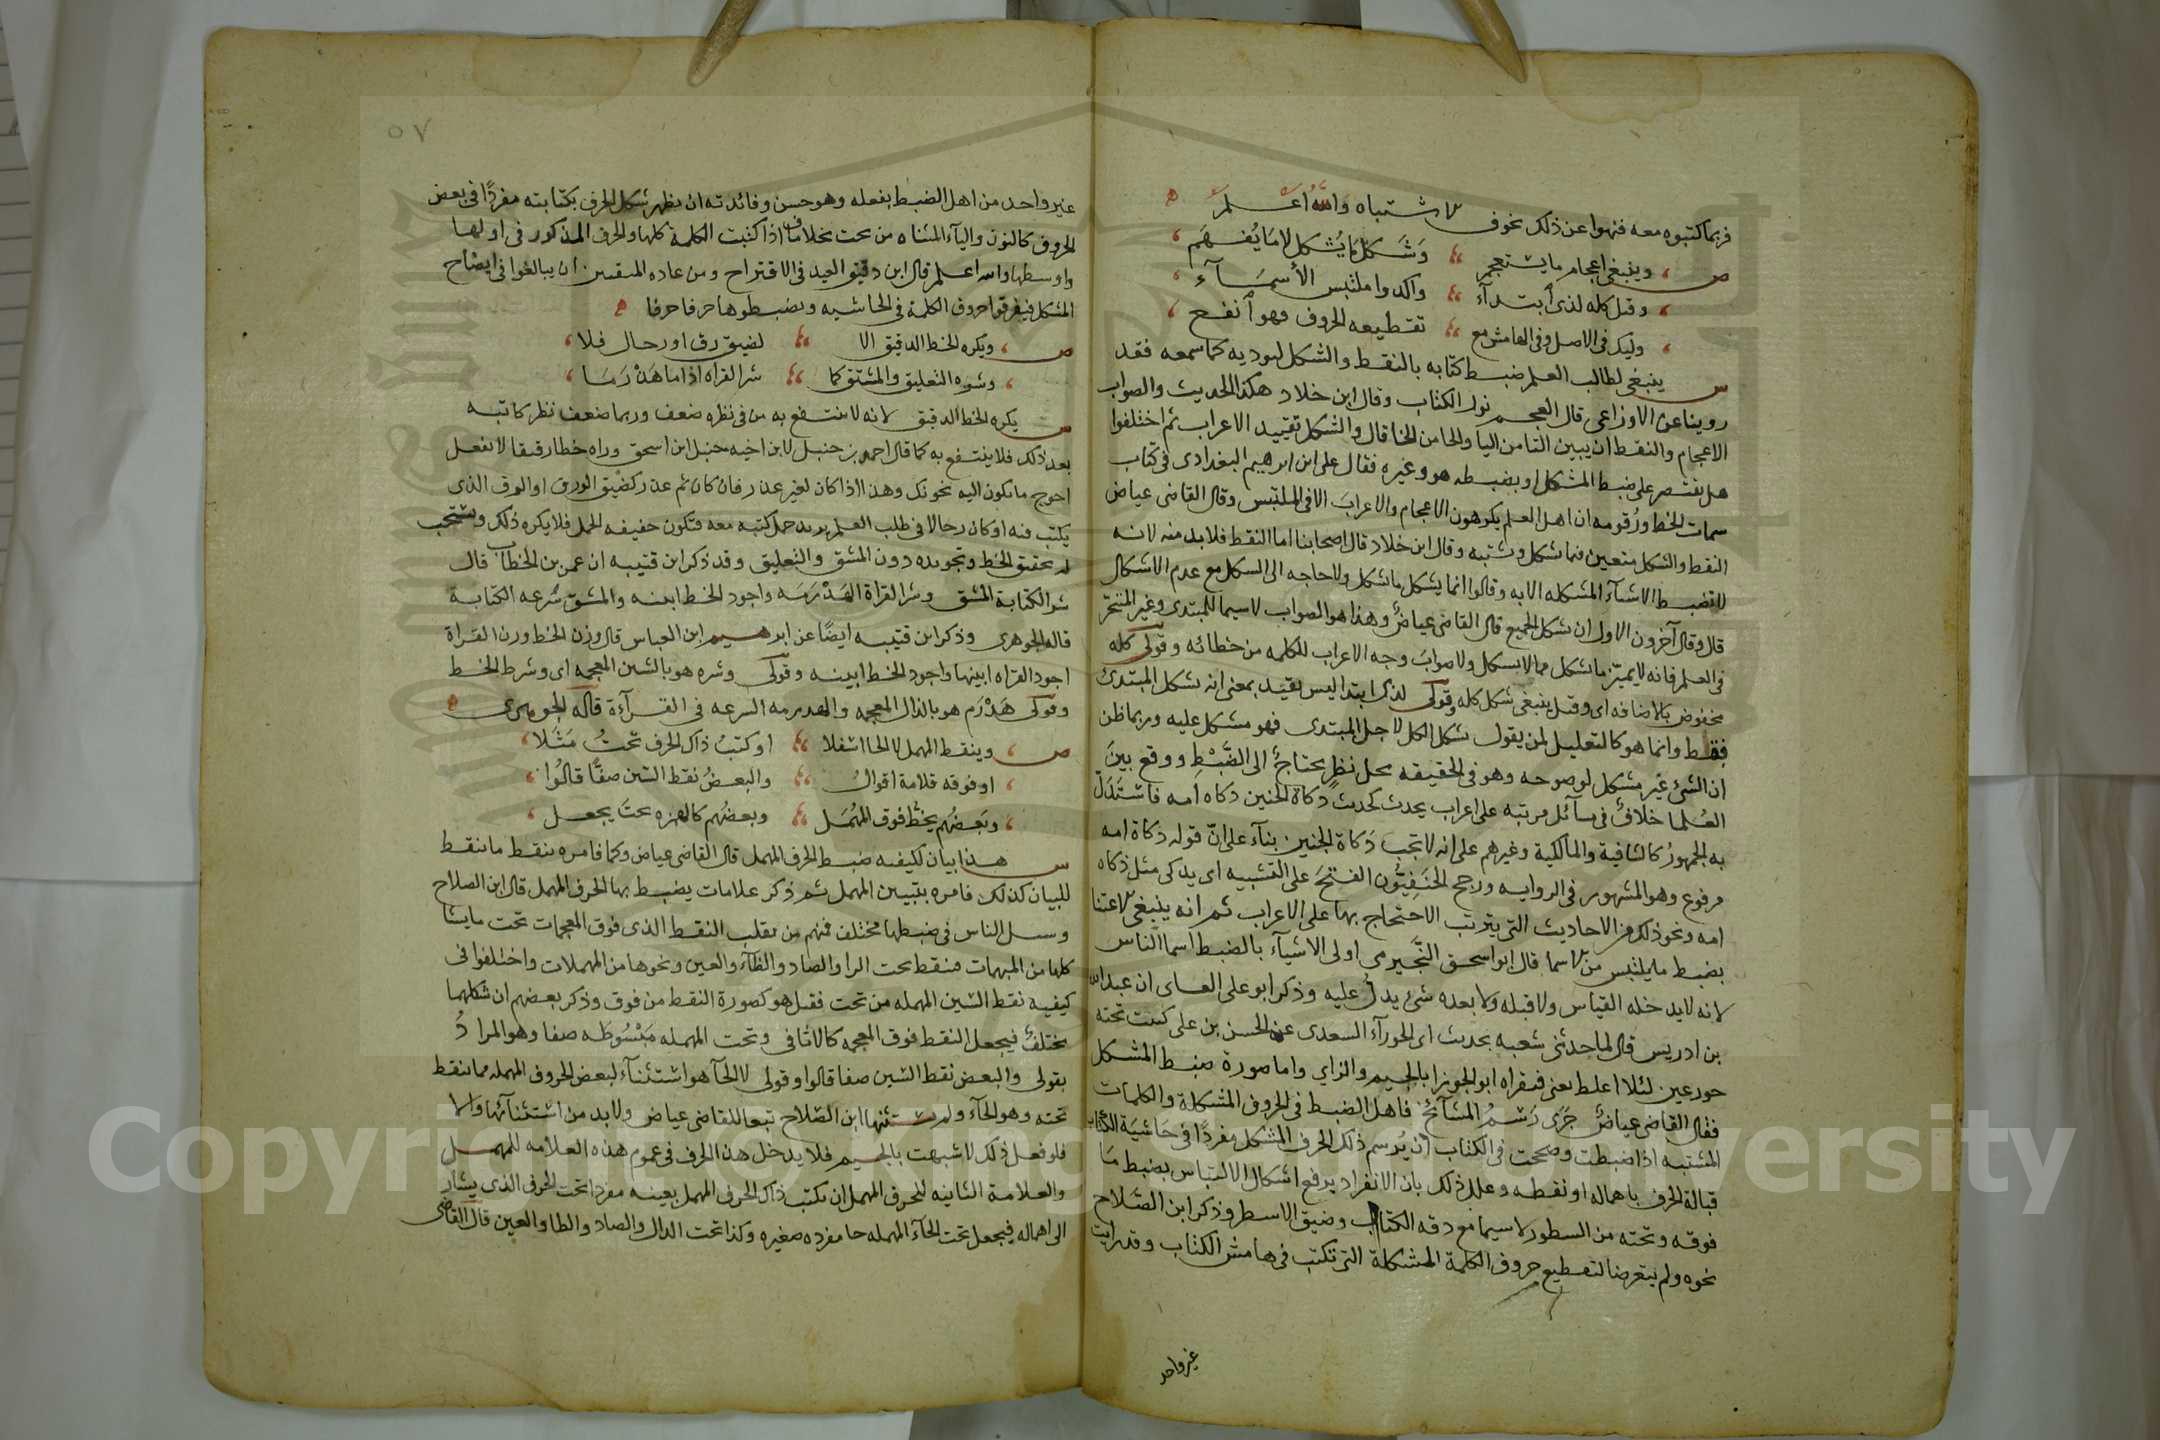 فربما كتبوه معه فنهوا عن ذلك لخوف الاشتباه والله أعلم
ص وينبغي اعجام ما يستعجم وشكل ما يشكل لا ما يفهم
وقيل كله لذي ابتداء واكدوا ملتبس الأسماء
وليك في الاصل وفي الهامش مع تقطيعه الحروف فهو أنفع
ش ينبغي لطالب العلم ضبط كتابه بالنقط والشكل ليوديه كما سمعه فقد
روينا عن الاوزاعي قال العجم نور الكتاب وقال ابن خلاد هكذا الحديث والصواب
الاعجام والنقط ان يبين التا من اليا والحا من الخا قال والشكل تقييد الاعراب ثم اختلفوا
هل يقتصر على ضبط المشكل او يضبطه هو وغيره فقال على ابن ابرهيم البغدادى في كتاب
سمات الخط ورقومه ان اهل العلم يكرهون الاعجام والاعراب الا في الملتبس وقال القاضى عياض
النقط والشكل متعين فيما يشكل ويشتبه وقال ابن خلاد قال اصحابنا اما النقط فلا بد منه لانه
لا تضبط الاشيآء المشكله الا به وقالوا انما يشكل ما يشكل ولا حاجه الى الشكل مع عدم الاشكال
قال وقال آخرون الاولى ان يشكل الجميع قال القاضى عياض وهذا هو الصواب لا سيما للمبتدى وغير المتبحر
في العلم فانه لا يميز ما يشكل مما لا يشكل ولا صواب وجه الاعراب للكلمه من خطائه وقولى كله
مخفوض بالاضافه اى وقيل ينبغى شكل كله وقولى لذى ابتدا ليس تقييد بمعنى انه يشكل المبتدئ
فقط وانما هو كالتعليل لمن يقول يشكل الكل لاجل المبتدى فهو مشكل عليه وربما ظن
ان الشئ غير مشكل لوضوحه وهو في الحقيقه محل نظر محتاج الى الضبط ووقع بين
العلما خلاف في مسائل مرتبه على اعراب يحدث كحديث ذكاة الجنين ذكاه امه فاستدل
به الجمهور كالشافية والمالكية وغيرهم على انه لا تجب ذكاة الجنين بنآء على ان قوله ذكاة امه
مرفوع وهو المشهور في الروايه ورجح الحنفيون الفتح على التشبيه اى يدكى مثل ذكاه
امه ونحو ذلك من الاحاديث التي يترتب الاحتجاج بها على الاعراب ثم انه ينبغى الاعتنا
بضبط ما يلتبس من الاسما قال ابو اسحق النجيرمى اولى الاشيآء بالضبط اسما الناس
لانه لا يدخله القياس ولا قبله ولا بعده شئ يدل عليه وذكر ابو على الغسانى ان عبد الله
بن ادريس قال لما حدثني شعبه بحديث ابى الحورآء السعدى عن الحسن بن على كتبت تحته
حور عين لئلا اغلط يعنى فيقراه ابو الجوزا بالجيم والزاي واما صورة ضبط المشكل
فقال القاضى عياض جرى رسم المشآئخ فاهل الضبط في الحروف المشكلة والكلمات
المشتبه اذا ضبطت وصححت في الكتاب ان يرسم ذلك الحرف المشكل مفردا في حاشية الكتاب
قبالة الحرف باهماله او نقطه وعلل ذلك بان الانفراد يرفع اشكال الالتباس بضبط ما
فوقه وتحته من السطور لا سيما مع دقه الكتاب وضيق الاسطر وذكر ابن الصلاح
نحوه ولم يتعرضا لتقطيع حروف الكلمة المشكلة التي تكتب في هامش الكتاب وقد رايت
غير واحد
٥٧
غير واحد من اهل الضبط يفعله وهو حسن وفائدته ان يظهر شكل الحرف بكتابته مفردا في بعض
الحروف كالنون والياء المثناه من تحت بخلاف ما اذا كتبت الكلمة كلها والحرف المذكور في اولها
واوسطها والله اعلم قال ابن دقيق العيد في الاقتراح ومن عاده المتقنين ان يبالغوا في ايضاح
المشكل فيفرقوا حروف الكلمة في الحاشيه ويضبطوها حرفا حرفا
ص ويكره الخط الدقيق الا لضيق رق او رحال فلا
وشره التعليق والمشق كما شر القراه اذا ما هذرما
ش يكره الخط الدقيق لانه لا ينتفع به من في نظره ضعف وربما ضعف نظر كاتبه
بعد ذلك فلا ينتفع به كما قال احمد بن حنبل لابن اخيه حنبل ابن اسحق وراه خطا رقيقا لا تفعل
احوج ما تكون اليه يخونك وهذا اذا كان لغير عذر فان كان ثم عذر كضيق الورق او الرق الذى
يكتب فيه او كان رحالا في طلب العلم يريد حمل كتبه معه فتكون خفيفه الحمل فلا يكره ذلك ويستحب
له تحقيق الخط وتجويده دون المشق والتعليق وقد ذكر ابن قتيبه ان عمر بن الخطاب قال
شر الكتابة المشق وشر القراة الهذرمه واجود الخط ابينه والمشق سرعه الكتابة
قاله الجوهرى وذكر ابن قتيبه ايضا عن ابرهيم ابن العباس قال وزن الخط وزن القراة
اجود القراه ابينها واجود الخط ابينه وقولى وشره هو بالشين المعجمه اى وشر الخط
وقولى هذرم هو بالذال المعجمه والهدرمه السرعه في القرآءة قاله الجوهرى
ص وينقط المهمل لا الحا اسفلا او كتب ذاك الحرف تحت مثلا
او فوقه قلامة اقوال والبعض نقط السين صفا قالوا
وبعضهم يخط فوق المهمل وبعضهم كالهمزه تحت يجعل
ش هذا بيان لكيفيه ضبط الحرف المهمل قال القاضى عياض وكما نامره بنقط ما ينقط
للبيان كذلك نامره بتبيين المهمل ثم ذكر علامات يضبط بها الحرف المهمل قال ابن الصلاح
وسبيل الناس في ضبطها مختلف فمنهم من يقلب النقط الذى فوق المعجمات تحت ما يشا
كلها من المبهمات فينقط تحت الرا والصاد والطآء والعين ونحوها من المهملات واختلفوا فى
كيفيه نقط السين المهمله من تحت فقيل هو كصورة النقط من فوق وذكر بعضهم ان شكلهما
يختلف فيجعل النقط فوق المعجمه كالاثافى وتحت المهمله مبسوطه صفا وهو المراد
بقولى والبعض نقط السين صفا قالوا وقولى لا الحآ هو استثنآء لبعض الحروف المهمله مما ينقط
تحته وهو الحآء ولم يستثنها ابن الصلاح تبعا للقاضى عياض ولا بد من استثنآئها والا
فلو فعل ذلك لاشبهت بالجيم فلا يدخل هذا الحرف في عموم هذه العلامه للمهمل
والعلامة الثانيه للحرف المهمل ان يكتب ذاك الحرف المهمل بعينه مفردا تحت الحرف الذى يشار
الى اهماله فيجعل تحت الحآء المهمله حا مفرده صغيره وكذا تحت الدال والصاد والطا والعين قال القاضى
Copyright © King Saud University